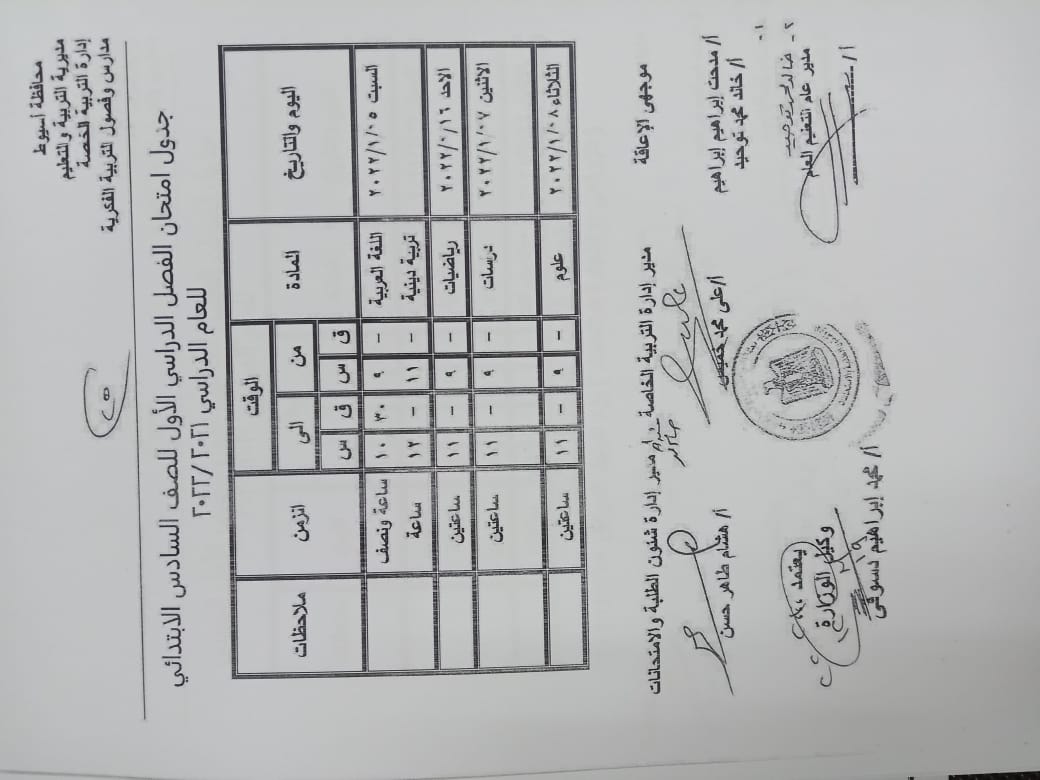 محافظة أسيوط
مديرية التربية والتعليم
إدارة التربية الخصة
مدارس وفصول للتربية الفكرية
جدول امتحان الفصل الدراسي الأول للصف السادس الابتدائي
للعام الدراسي ٢٠٢١/٢٠٢٢
اليوم والتاريخ المادة الوقت الزمن ملاحظات
من الى
ق س ق س
السبت ٢٠٢٢/١/٠٥ اللغة العربية - ٩ ٣٠ ١٠ ساعة ونصف
تربية دينية - ١١ - ١٢ ساعة
الاحد ٢٠٢٢/٠/١٦ رياضيات - ٩ - ١١ ساعتين
الاثنين ٢٠٢٢/١/٠٧ درسات - ٩ - ١١ ساعتين
الثلاثاء ٢٠٢٢/١/٠٨ علوم - ٩ - ١١ ساعتين
موجهى الإعاقة مدير إدارة التربية الخاصة مدير إدارة شئون الطلبة والامتحانات
أ/ مدحت إبراهيم إبراهيم أ/ على محمد أ/ هشام طاهر حسن
أ/ خالد محمد توحيد
١-
٢-
مدير عام التعليم العام يعتمد،،
وكيل الوزارة
أ/ أ/ محمد إبراهيم دسوقى